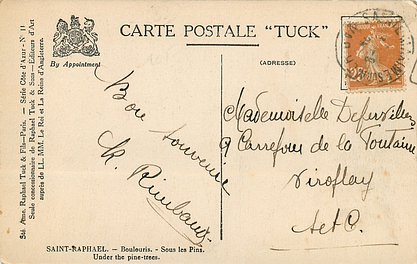 CARTE POSTALE "TUCK"
By Appointment
(ADRESSE)
Sté. Anme. Raphael Tuck & Fils—Paris. — Série Côte d'Azur—N° 11
Seule concessionnaire de Raphael Tuck & Sons—Editeurs d'Art
auprès de LL. MM. Le Roi et La Reine d'Angleterre.
Bon souvenir
Rimbaud
Mademoiselle
9 Carrefour de la Fontaine
Viroflay
S et O.
SAINT-RAPHAEL. — Boulouris. - Sous les Pins.
Under the pine-trees.